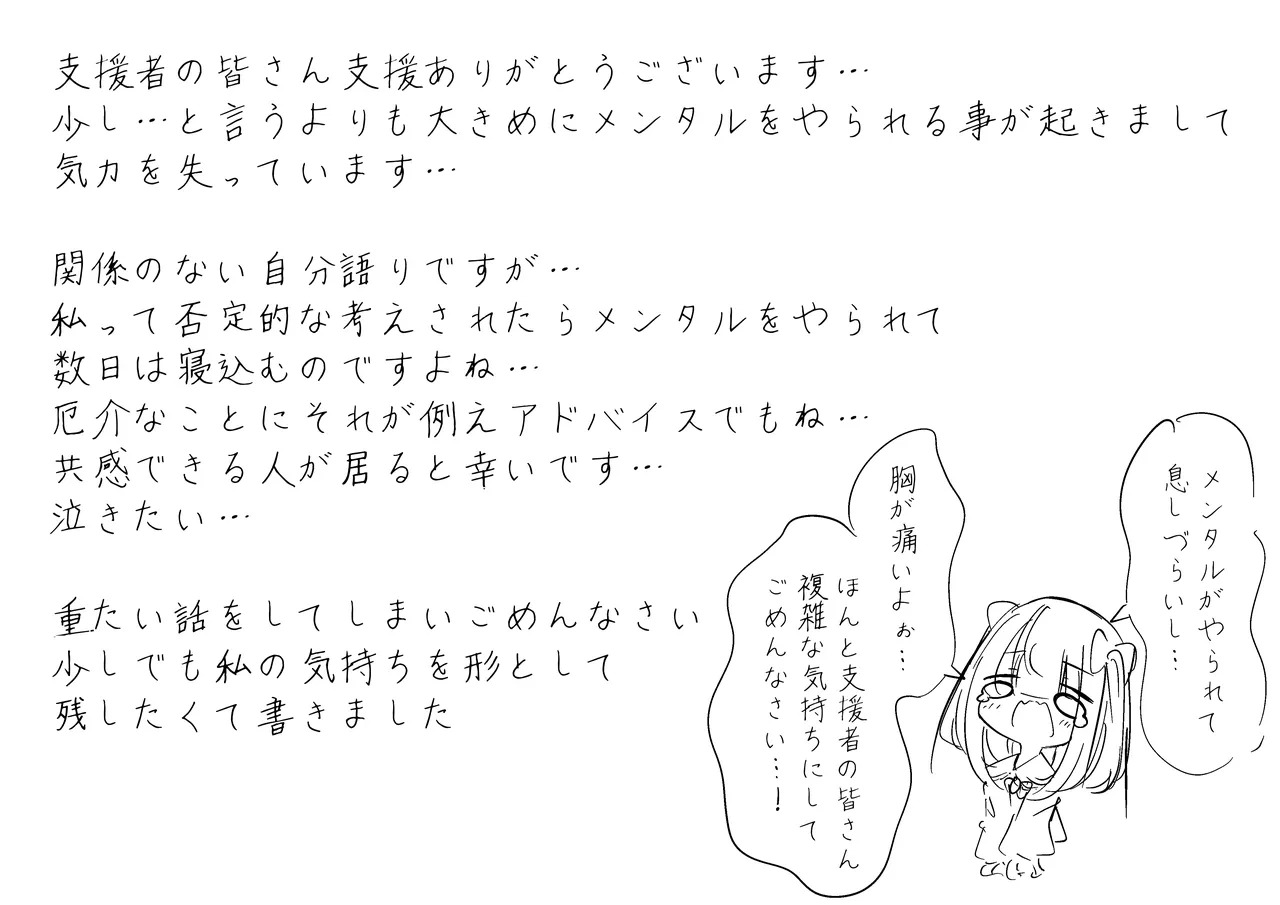 支援者の皆さん支援ありがとうございます…
少し…と言うよりも大きめにメンタルをやられる事が起きまして
気力を失っています…
関係のない自分語りですが…
私って否定的な考えされたらメンタルをやられて
数日は寝込むのですよね…
厄介なことにそれが例えアドバイスでもね…
共感できる人が居ると幸いです…
泣きたい…
重たい話をしてしまいごめんなさい
少しでも私の気持ちを形として
残したくて書きました
メンタルがやられて
息しづらいし…
胸が痛いよぉ…
ほんと支援者の皆さん
複雑な気持ちにして
ごめんなさい…!